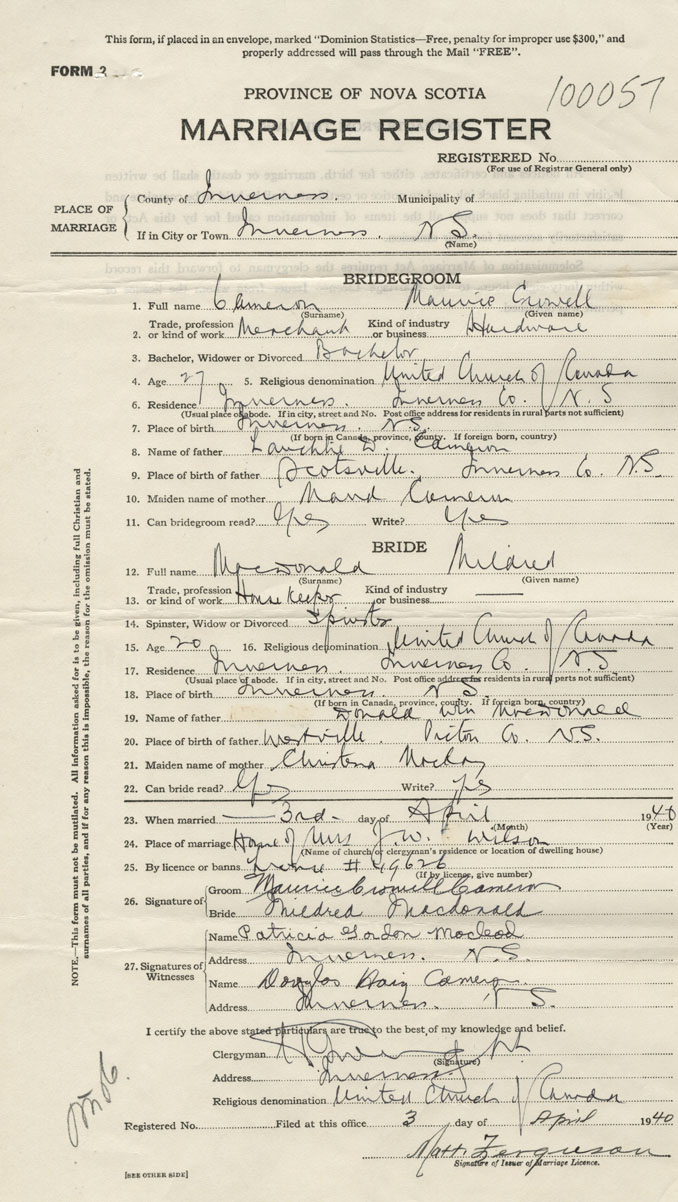 This form, if placed in an envelope, marked "Dominion Statistics—Free, penalty for improper use $300," and
properly addressed will pass through the Mail "FREE".
FORM 3
100057
PROVINCE OF NOVA SCOTIA
MARRIAGE REGISTER
REGISTERED No.
(For use of Registrar General only)
PLACE OF MARRIAGE
County of Inverness. Municipality of
If in City or Town Inverness. N.S.
(Name)
BRIDEGROOM
1. Full name Cameron Maurice Crowell
(Surname) (Given name)
2. Trade, profession or kind of work Merchant Kind of industry or business Hardware
3. Bachelor, Widower or Divorced Bachelor
4. Age 27 5. Religious denomination United Church of Canada
6. Residence Inverness. Inverness Co. N.S
(Usual place of abode. If in city, street and No. Post office address for residents in rural parts not sufficient)
7. Place of birth Inverness. N.S.
(If born in Canada, province, county. If foreign born, country)
8. Name of father Lauchlie D. Cameron
9. Place of birth of father Scotsville. Inverness Co. N.S.
10. Maiden name of mother Maud Cameron
11. Can bridegroom read? Yes Write? Yes
BRIDE
12. Full name Macdonald Mildred
(Surname) (Given name)
13. Trade, profession or kind of work Housekeeper Kind of industry or business
14. Spinster, Widow or Divorced Spinster
15. Age 20 16. Religious denomination United Church of Canada
17. Residence Inverness. Inverness Co. N.S.
(Usual place of abode. If in city, street and No. Post office address for residents in rural parts not sufficient)
18. Place of birth Inverness. N.S.
(If born in Canada, province, county. If foreign born, country)
19. Name of father Donald Wm Macdonald
20. Place of birth of father Westville. Pictou Co. N.S.
21. Maiden name of mother Christena Mackay
22. Can bride read? Yes Write? yes
23. When married 3rd day of April 1940
(Month) (Year)
24. Place of marriage Home of Mrs J.W. Wilson
(Name of church or clergyman's residence or location of dwelling house)
25. By licence or banns # 49626
(If by license, give number)
26. Signature of Groom Maurice Crowell Cameron
Bride Mildred Macdonald
27. Signatures of Witnesses
Name Patricia Gordon Macleod
Address Inverness. N.S.
Name Douglas Haig Cameron.
Address Inverness. N.S.
I certify the above stated particulars are true to the best of my knowledge and belief.
Clergyman
(Signature)
Address Inverness
Religious denomination United Church of Canada
Registered No. Filed at this office 3 day of April 1940
Matt. F. Ferguson
Signature of Issuer of Marriage Licence.
[SEE OTHER SIDE]
NOTE.—This form must not be mutilated. All information asked for is to be given, including full Christian and
surnames of all parties, and if for any reason this is impossible, the reason for the omission must be stated.